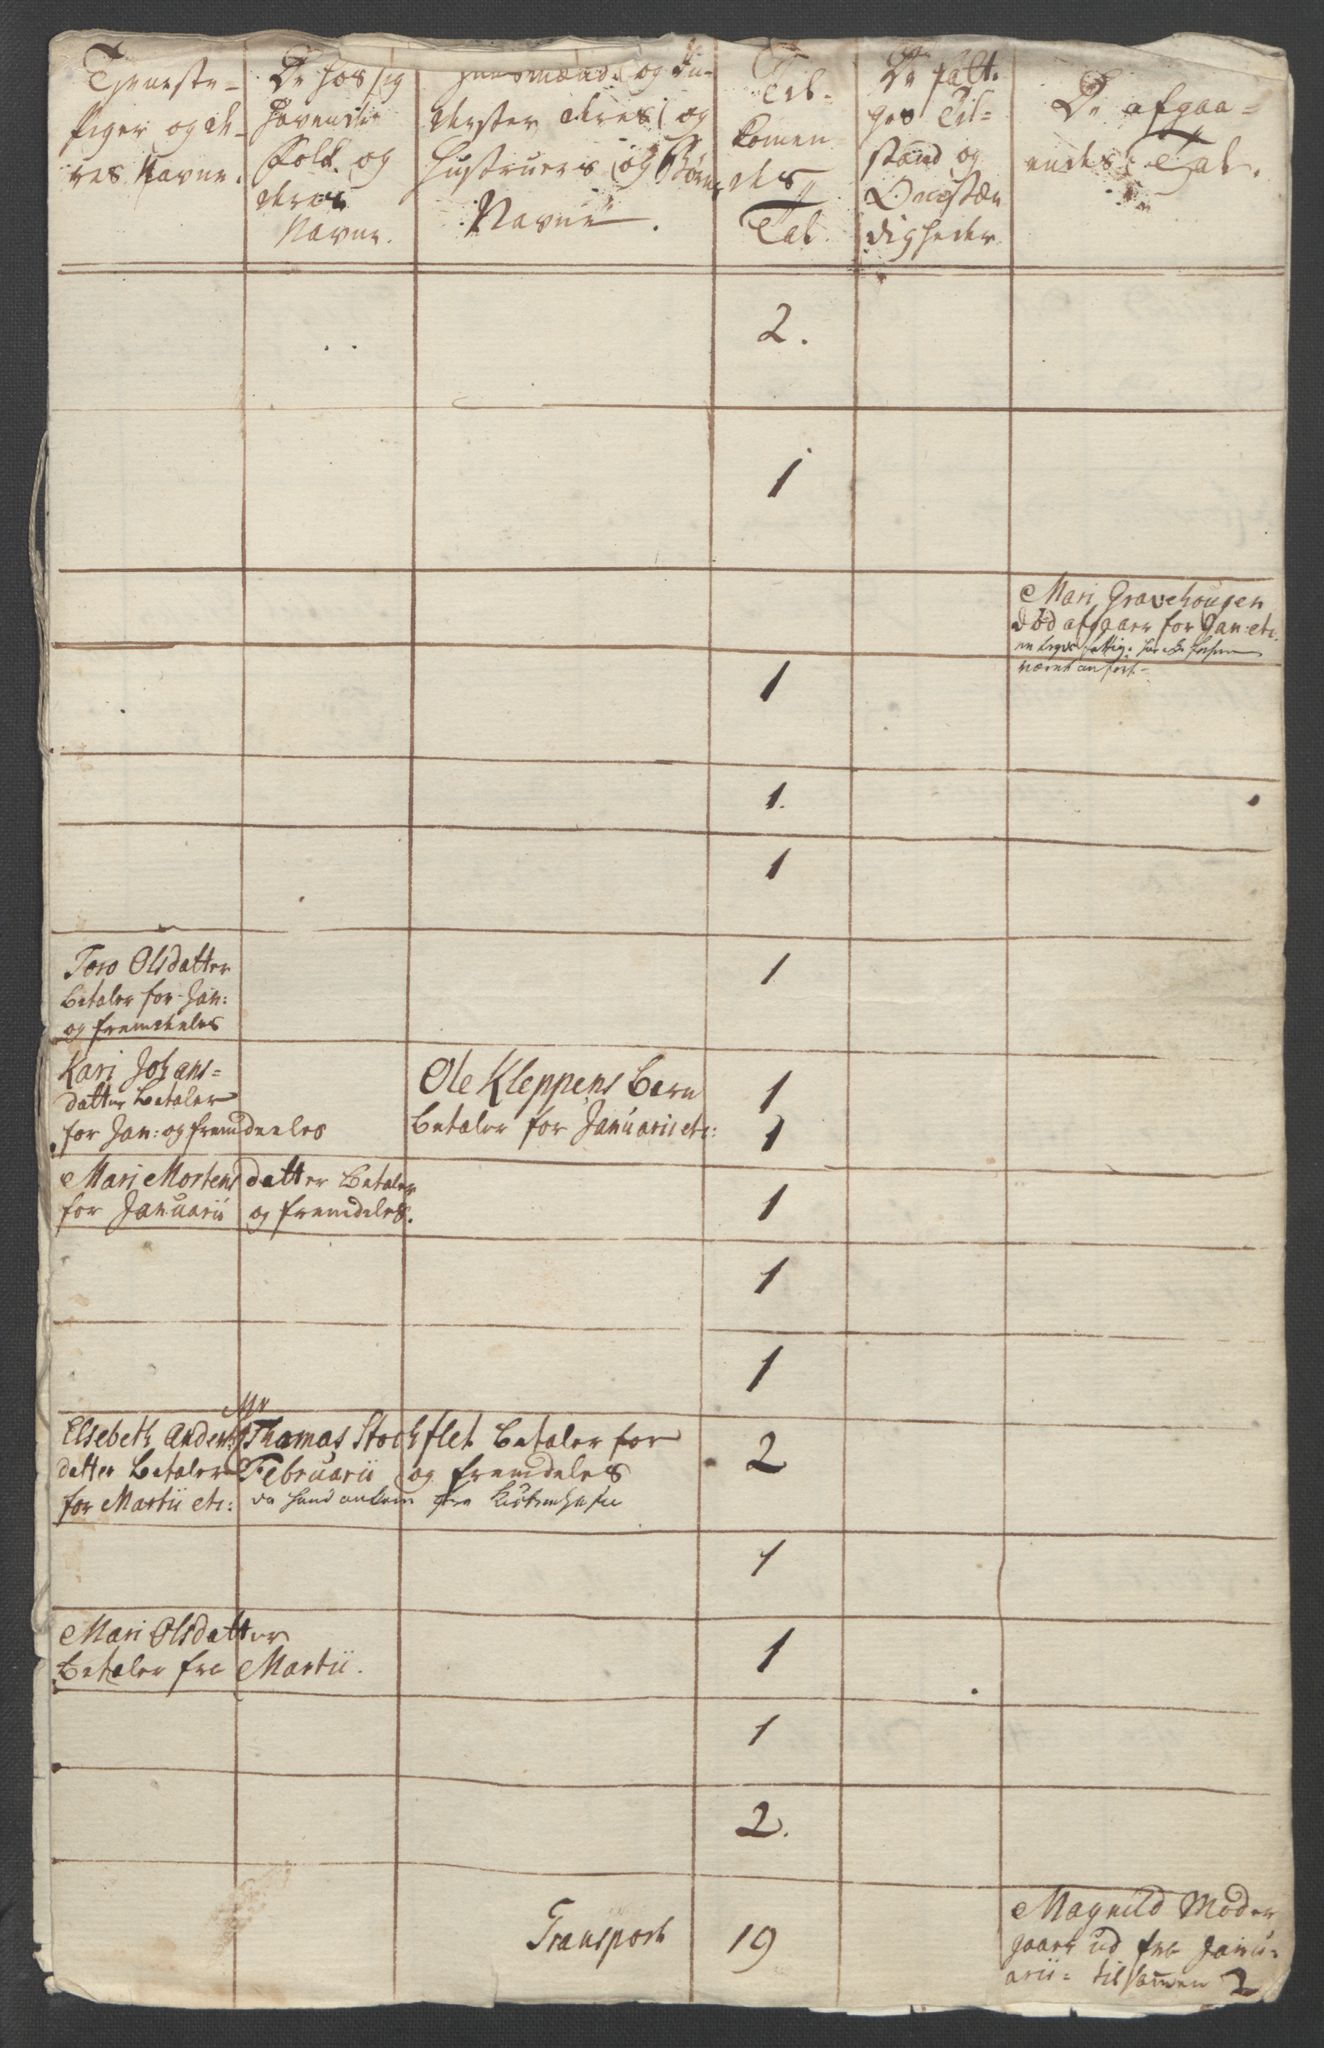 Tjeneste-
piger og de-
res Navne.
De hos sig
havende
Folk og
deres
Navne.
Huusmænd og In-
derster deres og
Hustruers og Børns
Navne.
Til-
komen-
des
Tal
De fatti-
ges Til-
stand og
Omstæn
digheder
De afgaa-
endes Tal.
2.
1
Mari Gravehougen
død afgaar for Jan: etc.
været anført-
1
1.
1
Toro Olsdatter
betaler for Jan:
og fremdeeles
1
Kari Johans-
datter betaler
for Jan: og fremdeeles
Ole Kleppens Barn
betaler for Januarii etc:
1
1
Mari Mortensdatter betaler
for Januarii og fremdeles.
1
1
1
Elsebeth Anders
datter betaler
for Martii etc:
Mr
Thomas Stochflet betaler for
Februarii og fremdeles
da hand ankom fra
2
1
Mari Olsdatter
betaler fra Martii.
1
1
2.
Transport 19
Magnild Moder
gaar ud fra Janu-
arii- tilsamen 2